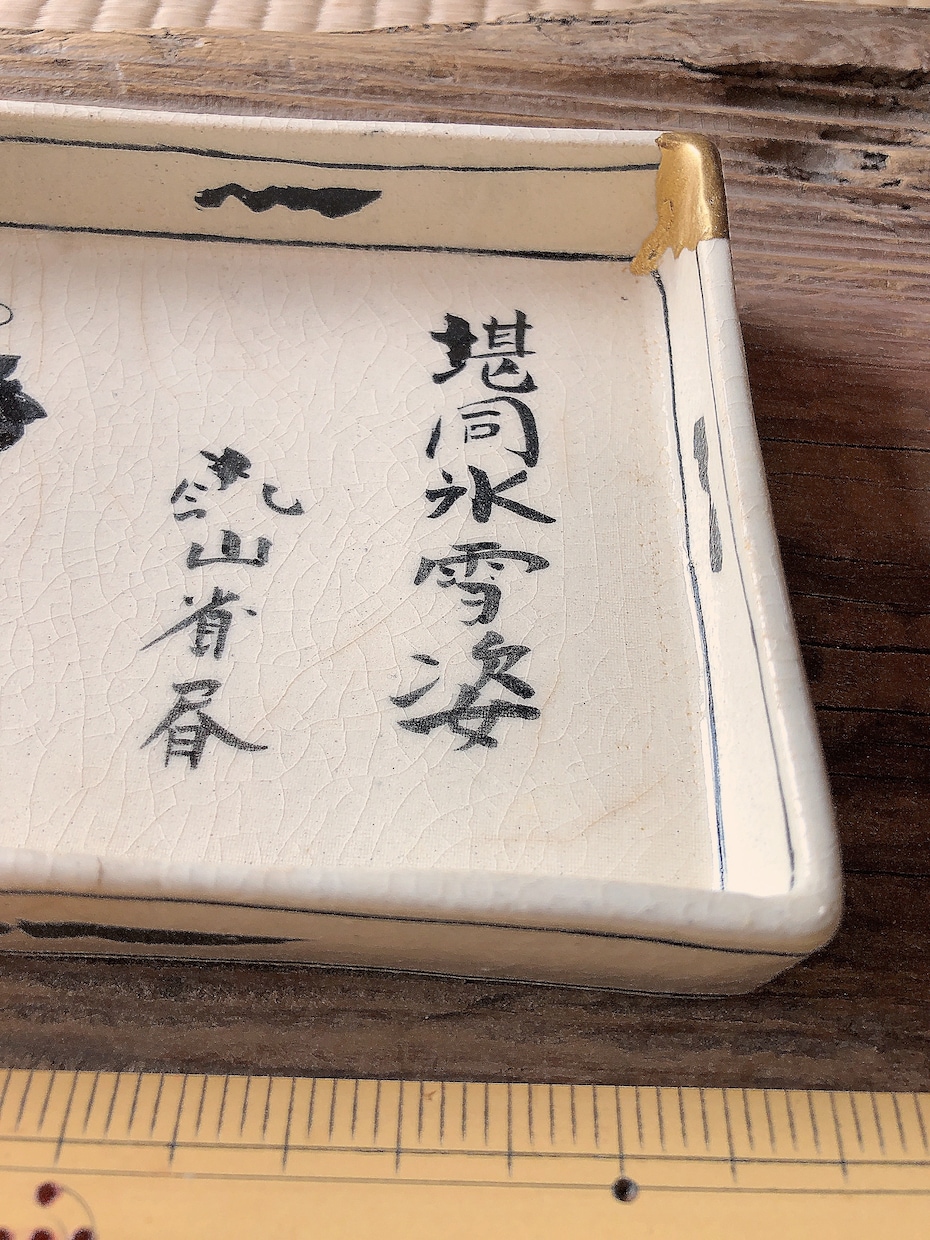 堪同氷雪姿
乾山省書